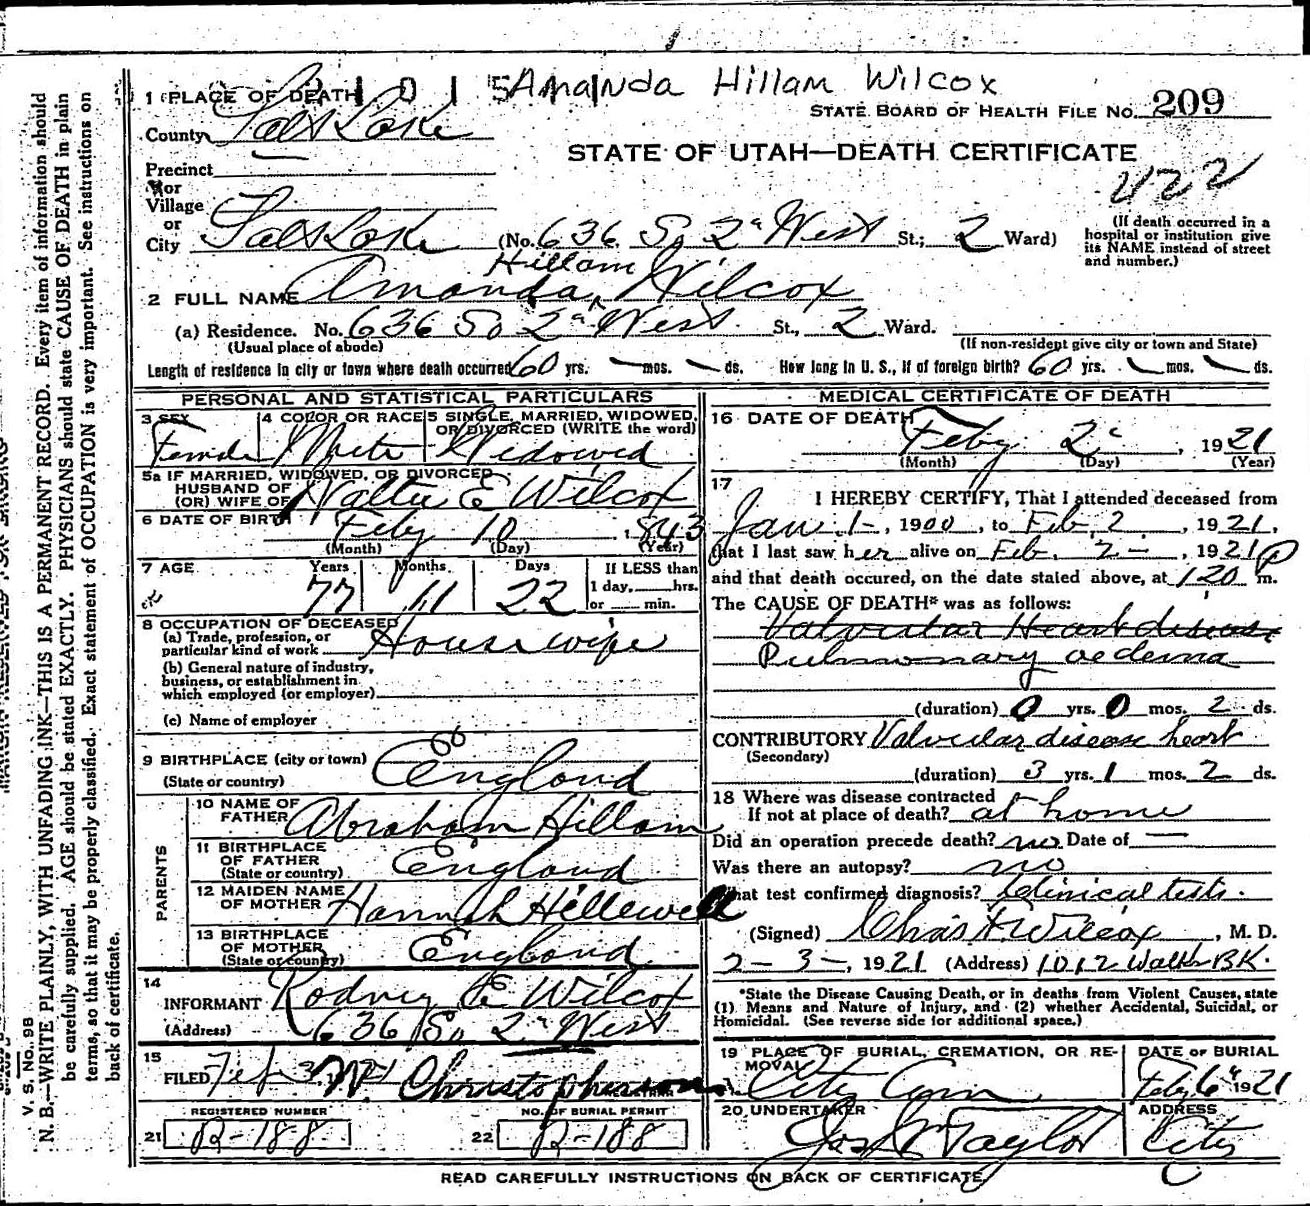 Amanda Hillam Wilcox
1 PLACE OF DEATH 2 1 0 1 5 1
STATE BOARD OF HEALTH FILE NO. 209
County Salt Lake
STATE OF UTAH—DEATH CERTIFICATE
Precinct
or
Village
or
City Salt Lake (No. 636 So 2d West St.; 2 Ward)
(If death occurred in a hospital or institution give its NAME instead of street and number.)
Hillam
2 FULL NAME Amanda Wilcox
(a) Residence. No. 636 So 2d West St., 2 Ward.
(Usual place of abode) (If non-resident give city or town and State)
Length of residence in city or town where death occurred 60 yrs. — mos. — ds. How long in U. S., if of foreign birth? 60 yrs. — mos. — ds.
PERSONAL AND STATISTICAL PARTICULARS
3 SEX 4 COLOR OR RACE 5 SINGLE, MARRIED, WIDOWED, OR DIVORCED (WRITE the word)
Female White Widowed
5a IF MARRIED, WIDOWED, OR DIVORCED
HUSBAND OF
(OR) WIFE OF Walter E Wilcox
6 DATE OF BIRTH Feby 10 1843
(Month) (Day) (Year)
7 AGE Years Months Days If LESS than
77 11 22 1 day, hrs.
or min.
8 OCCUPATION OF DECEASED
(a) Trade, profession, or
particular kind of work Housewife
(b) General nature of industry,
business, or establishment in
which employed (or employer)
(c) Name of employer
9 BIRTHPLACE (city or town)
(State or country) England
PARENTS
10 NAME OF
FATHER Abraham Hillam
11 BIRTHPLACE
OF FATHER
(State or country) England
12 MAIDEN NAME
OF MOTHER Hannah Hillewell
13 BIRTHPLACE
OF MOTHER
(State or country) England
14
INFORMANT Rodney E Wilcox
(Address) 636 So 2d West
15
FILED Feb 3, 1921 W. Christopherson
REGISTERED NUMBER NO. OF BURIAL PERMIT
21 B-188 22 B-188
MEDICAL CERTIFICATE OF DEATH
16 DATE OF DEATH
Feby 2d, 1921
(Month) (Day) (Year)
17
I HEREBY CERTIFY, That I attended deceased from
Jan 1-, 1900, to Feb 2, 1921,
that I last saw her alive on Feb. 2-, 1921
and that death occured, on the date stated above, at 120 P m.
The CAUSE OF DEATH* was as follows:
Valvular Heart disease
Pulmonary oedema
(duration) 0 yrs. 0 mos. 2 ds.
CONTRIBUTORY Valvular disease heart
(Secondary)
(duration) 3 yrs. 1 mos. 2 ds.
18 Where was disease contracted
If not at place of death? at home
Did an operation precede death? no Date of —
Was there an autopsy? no
What test confirmed diagnosis? Clinical tests.
(Signed) Chas F. Wilcox, M. D.
2-3-, 1921 (Address) 1012 Walker BK.
*State the Disease Causing Death, or in deaths from Violent Causes, state
(1) Means and Nature of Injury, and (2) whether Accidental, Suicidal, or
Homicidal. (See reverse side for additional space.)
19 PLACE OF BURIAL, CREMATION, OR REMOVAL DATE OF BURIAL
City Cem Feby 6th 1921
20 UNDERTAKER ADDRESS
Jos W Taylor City
READ CAREFULLY INSTRUCTIONS ON BACK OF CERTIFICATE
V. S. No. 9B
N. B.—WRITE PLAINLY, WITH UNFADING INK—THIS IS A PERMANENT RECORD. Every item of information should
be carefully supplied. AGE should be stated EXACTLY. PHYSICIANS should state CAUSE OF DEATH in plain
terms, so that it may be properly classified. Exact statement of OCCUPATION is very important. See instructions on
back of certificate.